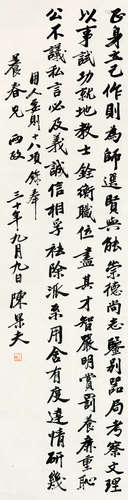 正身立己作為師選賢與能崇德尚志鑒别器局考察文理
以事試功就地教士銓衡職位盡其才智嚴明賞罰養廉重恥
公不議私言必及義誠信相孚祛除派系用舍有度達情研幾
用人案則十八項錄奉
養春兄 両政
三十年九月九日陳果夫